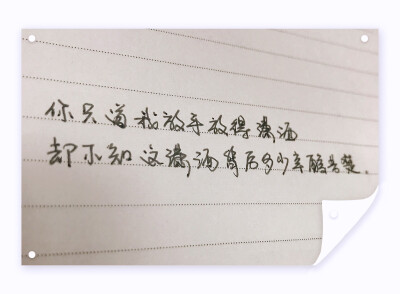 你只道我放手放得潇洒
却不知这潇洒背后多少辛酸苦楚.